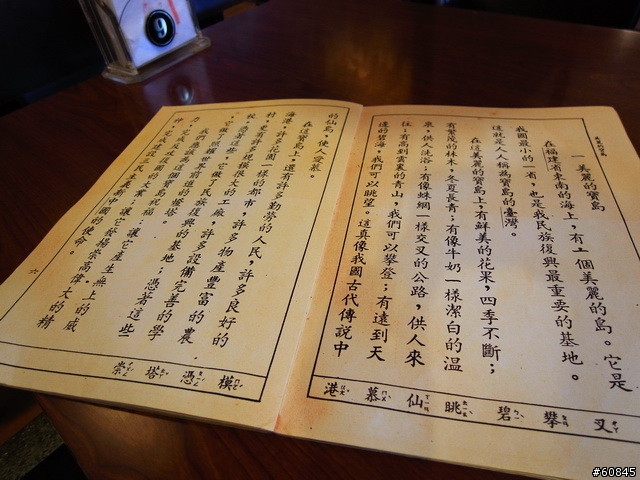 9
一 美麗的寶島
在福建省東南的海上，有一個美麗的島。它是
我國最小的一省，也是我民族復興最重要的基地。
這就是人人稱為寶島的臺灣。
在這美麗的寶島上，有鮮美的花果，四季不斷；
有繁茂的林木，冬夏長青；有像牛奶一樣潔白的溫
泉，供人洗浴；有像蛛網一樣交叉的公路，供人來
往；有高到雲裏的青山，我們可以攀登；有遠到天
邊的碧海，我們可以眺望。這真像我國古代傳說中
叉 攀 碧 眺 仙 慕 港
的仙島，使人愛慕。
在這寶島上，還有許多勤勞的人民，許多良好的
海港，許多花園一樣的都市，許多物產豐富的農
村，更有許多規模很大的工廠，許多設備完善的學
校。憑著這些，它做了民族復興的基地；憑著這些
它做了照耀世界前進的燈塔。
我們應該為這個寶島祝福：讓它產生無上的威
力，完成反攻復國的大業；讓它發揚崇高偉大的精
神，完成建設三民主義新中國的使命。
六
模 憑 塔 崇
#60845